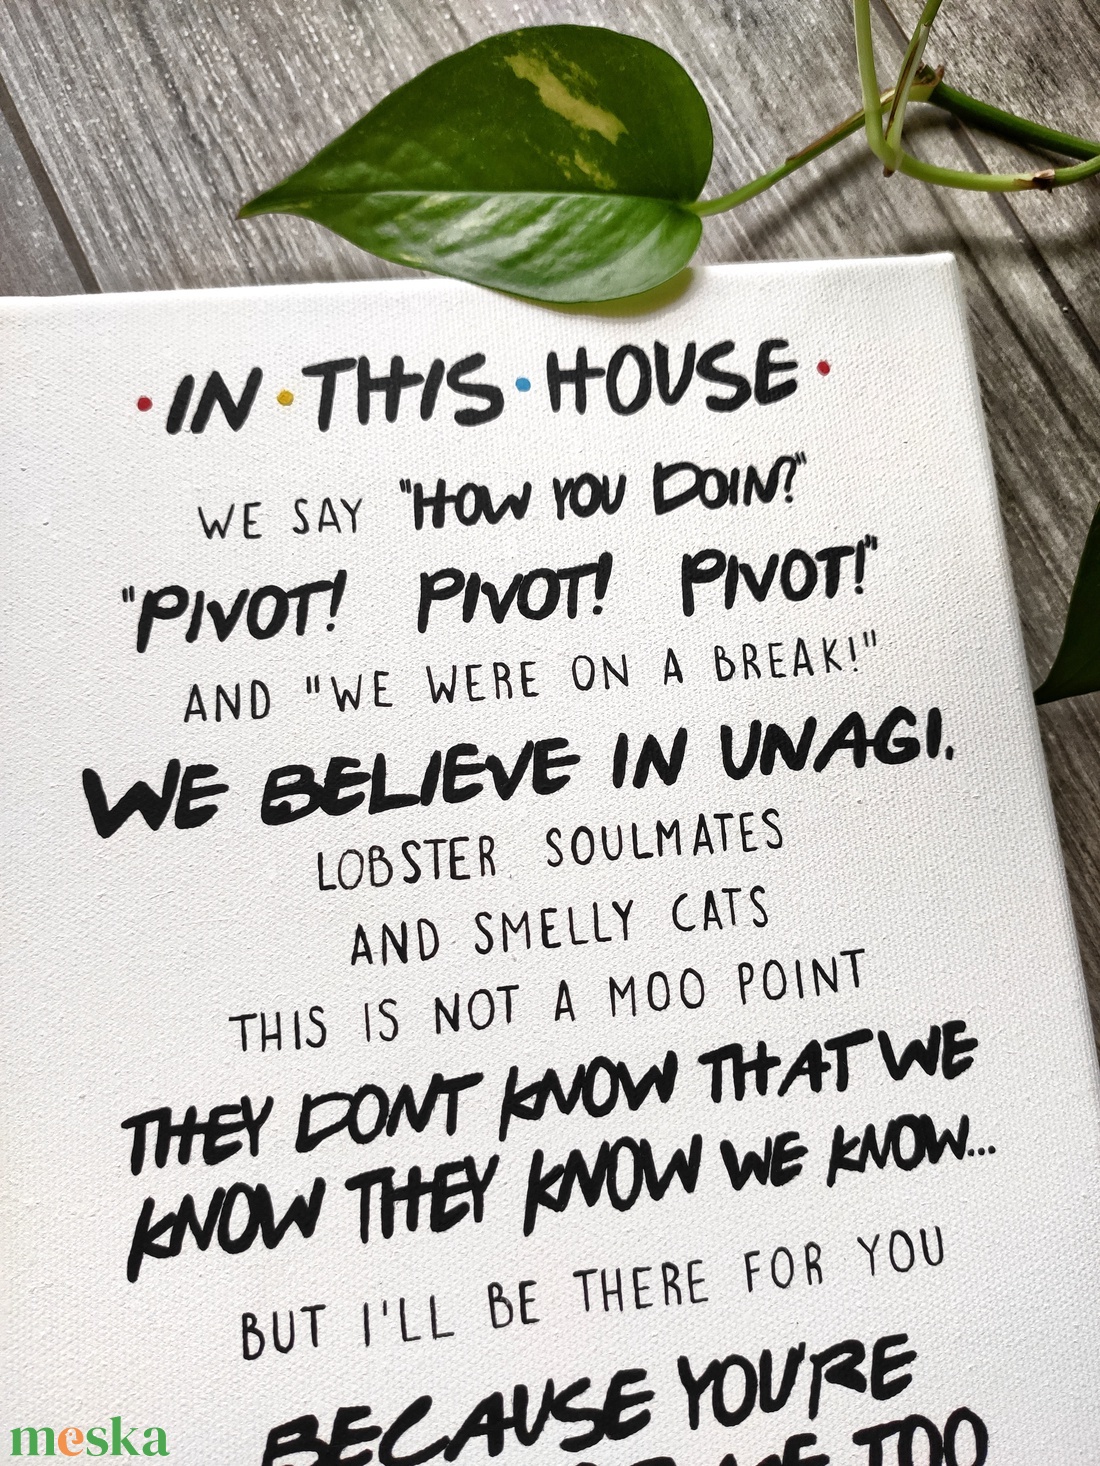 ·IN·THIS·HOUSE·
WE SAY "HOW YOU DOIN?"
"PIVOT! PIVOT! PIVOT!"
AND "WE WERE ON A BREAK!"
WE BELIEVE IN UNAGI.
LOBSTER SOULMATES
AND SMELLY CATS
THIS IS NOT A MOO POINT
THEY DONT KNOW THAT WE
KNOW THEY KNOW WE KNOW...
BUT I'LL BE THERE FOR YOU
BECAUSE YOU'RE
TOO
meska